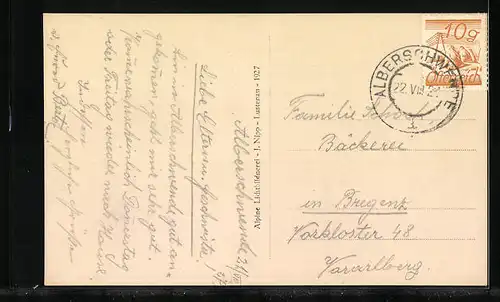 Alberschwende, 21/VII 27.
Liebe Eltern u. Geschwister!
Bin in Alberschwende gut an-
gekommen, geht mir sehr gut.
Komme wahrscheinlich Donnerstag
oder Freitag wieder nach Hause.
Indessen
Alpine Lichtbildnerei - J. Nipp - Lustenau - 1927
10g
Österreich
ALBERSCHWENDE
22.VII.27
Familie
Bäckerei
in Bregenz
Vorkloster 48
Vorarlberg.